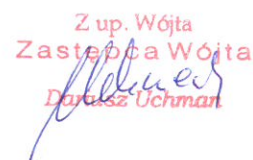 Z up. Wójta
Zastępca Wójta
Dariusz Uchman